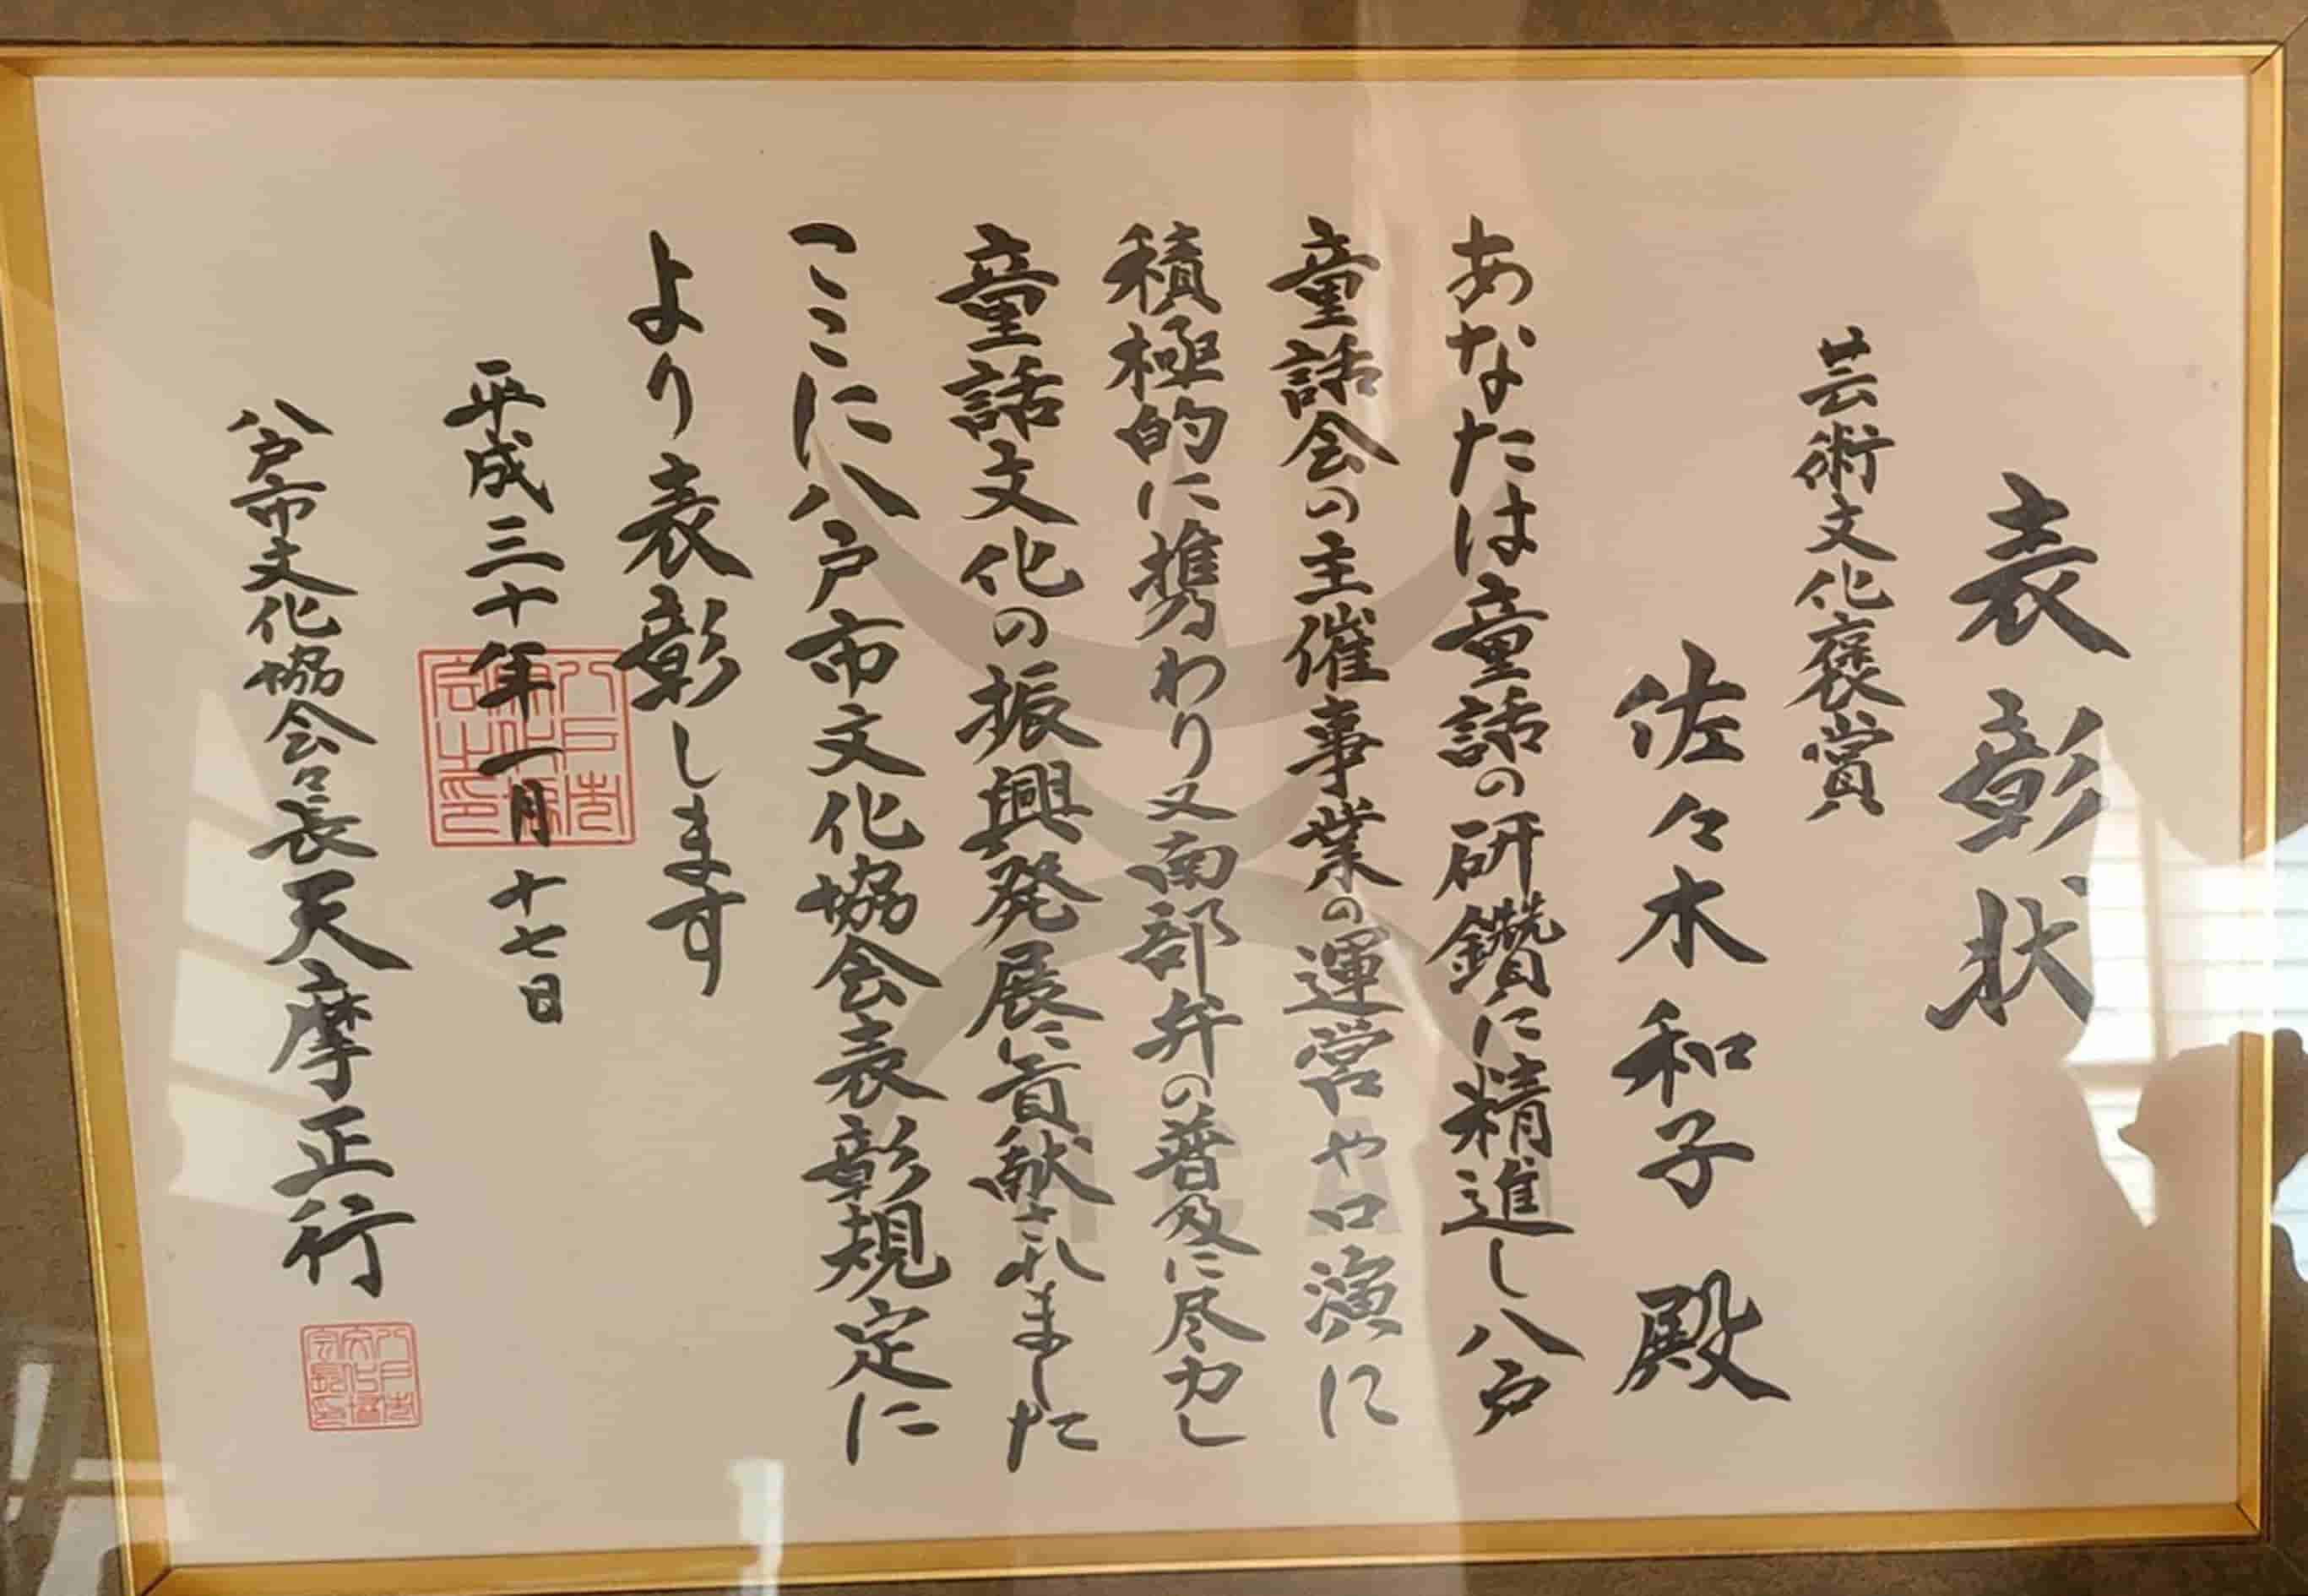 表彰状
芸術文化褒賞
佐々木和子殿
あなたは童話の研鑽に精進し八戸
童話会の主催事業の運営や口演に
積極的に携わり又南部弁の普及に尽力し
童話文化の振興発展に貢献されました
ここに八戸市文化協会表彰規定に
より表彰します
平成三十年一月十七日
八戸市文化協会々長天摩正行